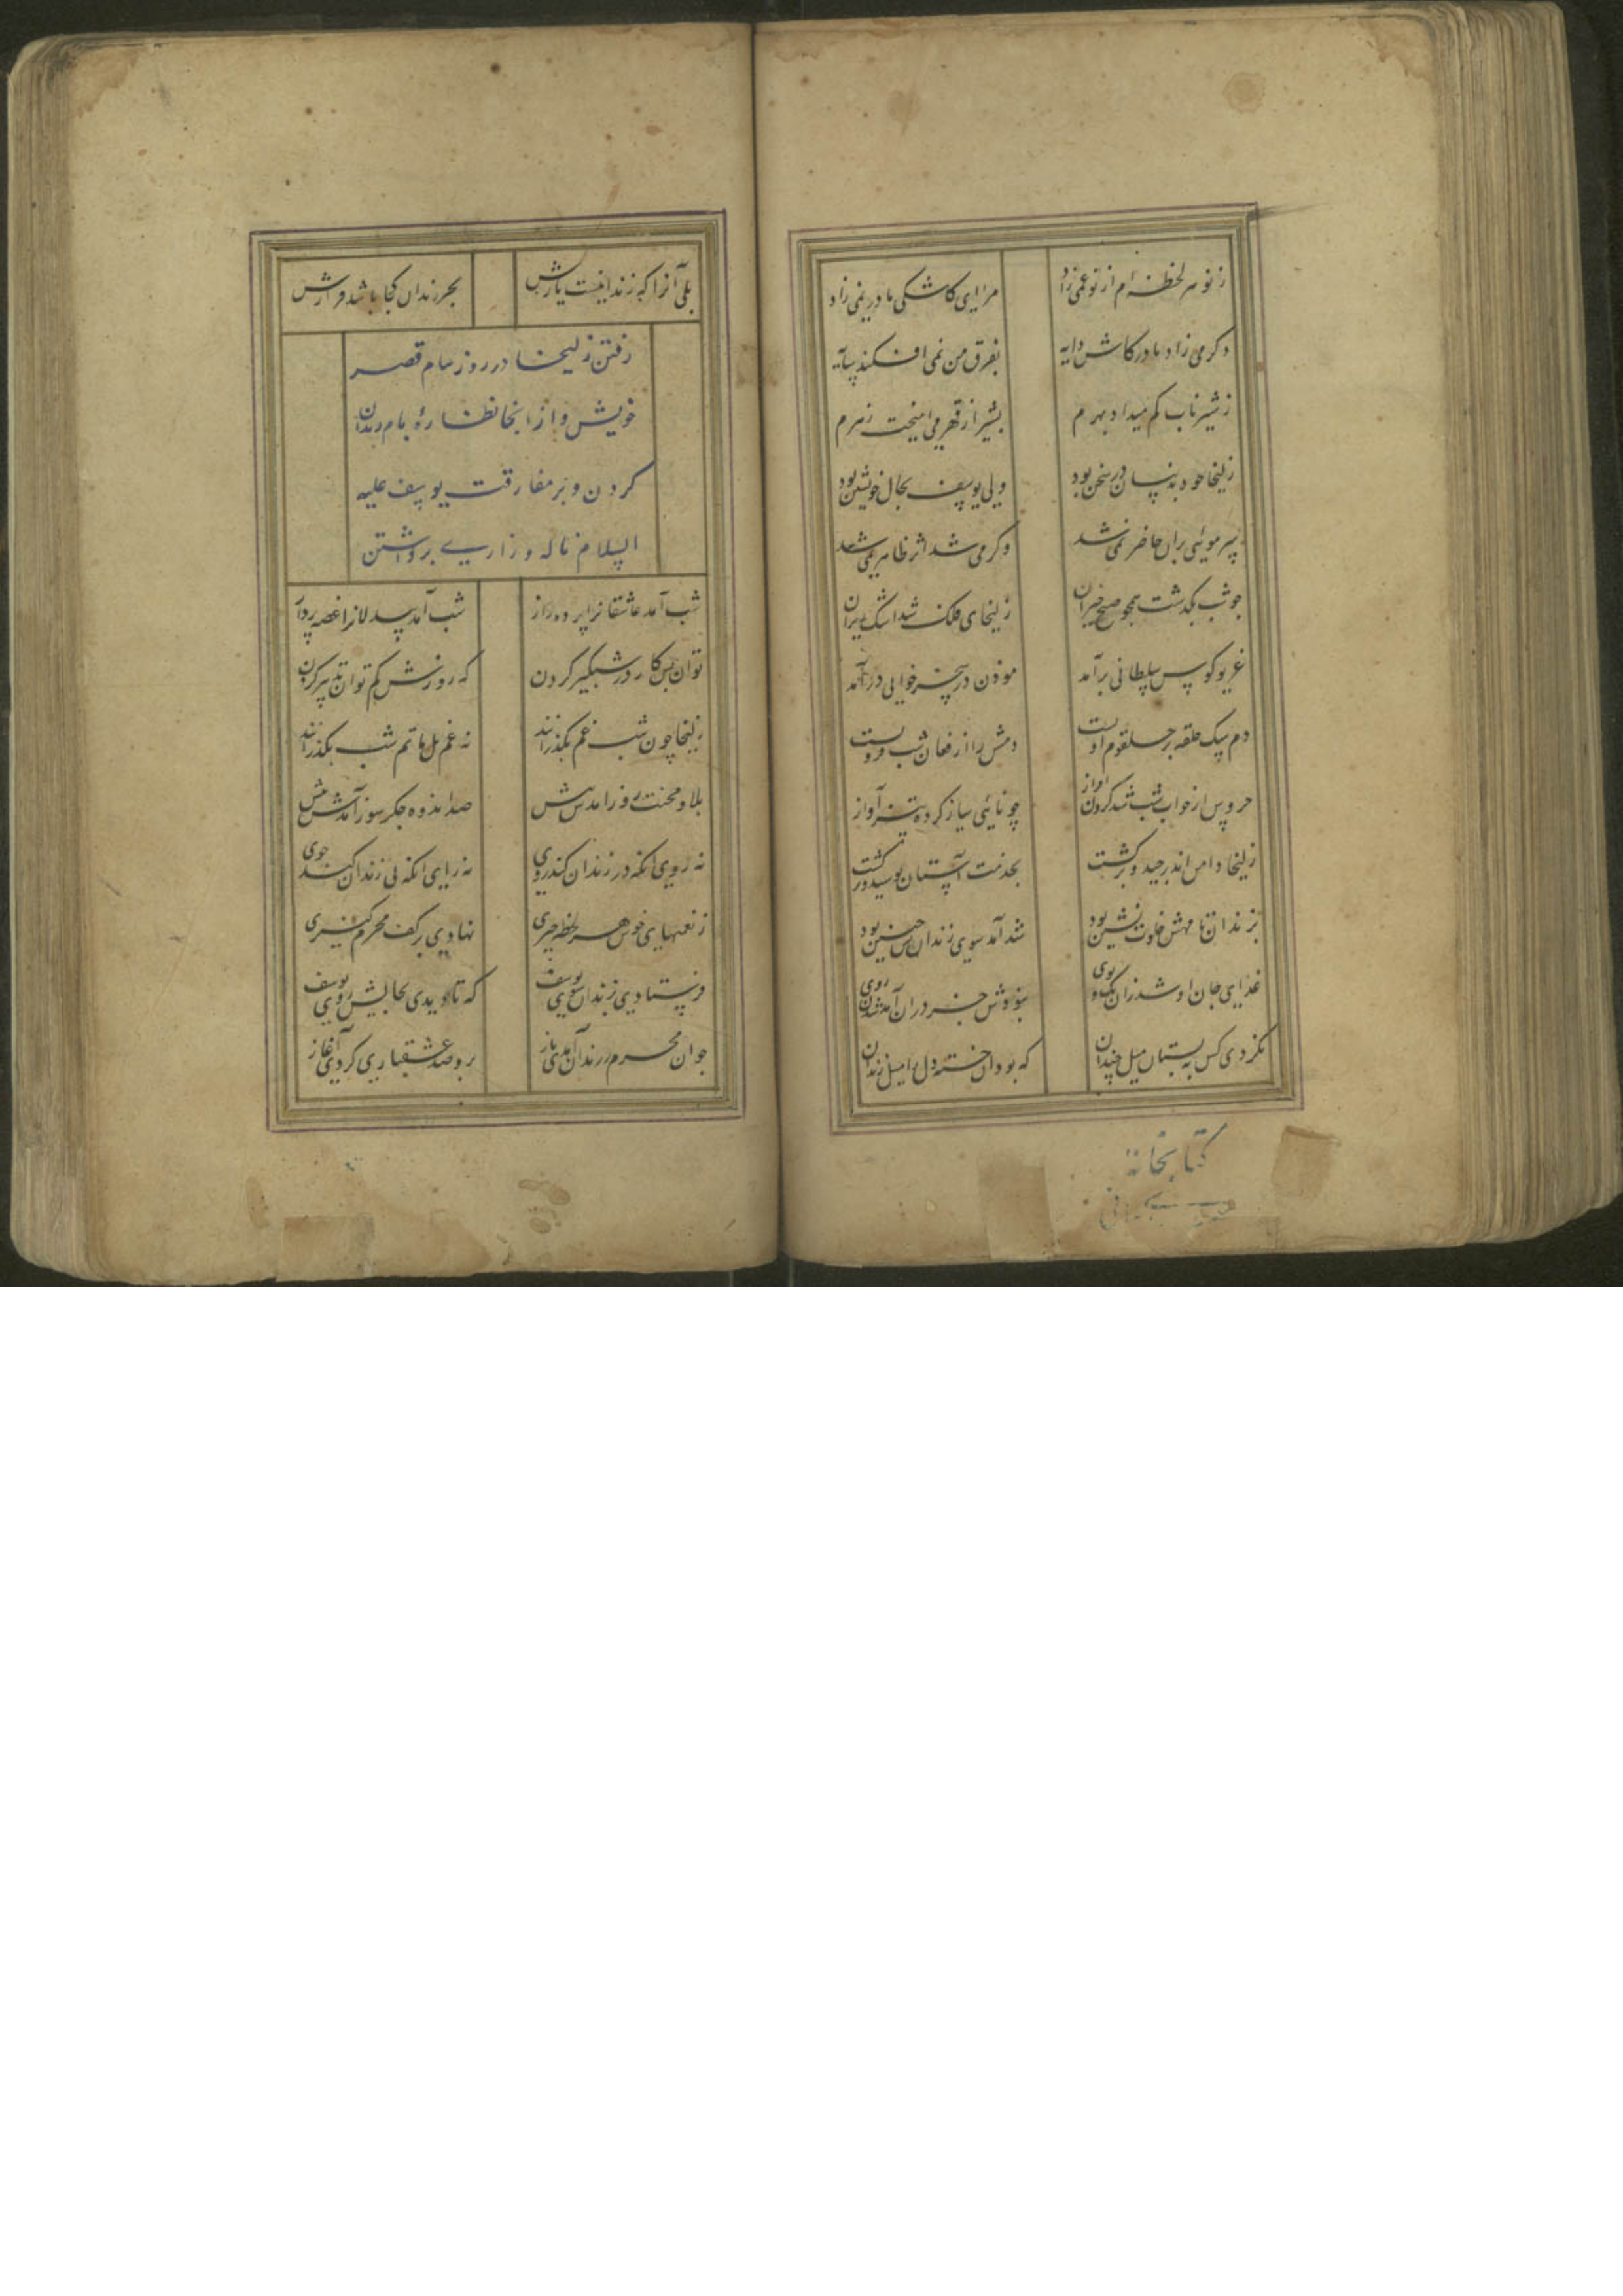 ز تو هر لحظه ام از نو غمی زاد مرا ای کاشکی مادر نمی زاد
وکر می زاد مادر کاش دایه بفرق من نمی افکند سایه
ز شیر ناب کم میداد بهرم بشیر از قهر می امیخت زهرم
زلیخا خود بدینسان در سخن بود ولی یوسف بحال خویشتن بود
سر موئی بران حاضر نمی شد وکر می شد اثر ظاهر نمی شد
چو شب بکذشت همچو صبح خیزان زلیخای فلک شد اشک ریزان
غریو کوس سلطانی برآمد موذن در سحر خوانی درآمد
دم سک حلقه بر حلقوم او بست دمش را از فغان شب فرو بست
خروس از خواب شب شد کردن اواز چو نائی ساز کرده تیز آواز
زلیخا دامن اندر چید و برکشت بخدمت آستان بوسید و برکشت
بزندان تا مهش خلوت نشین بود شد آمد سوی زندانش چنین بود
غذای جان او شد زان تک و پوی نبودش جز دران آمد شدن روی
نکردی کس به بستان میل چندان که بود ان خسته دل را میل زندان
کتابخانه
بلی آنرا که زندانیست یارش بجز زندان کجا باشد قرارش
رفتن زلیخا در روز ببام قصر
خویش و از انجا نظاره بام زندان
کردن و بر مفارقت یوسف علیه
السلام ناله و زاری برداشتن
شب آمد عاشقانرا پرده راز شب آمد بیدلانرا غصه پرداز
توان بس کار در شبکیر کردن که روزش کم توان تدبیر کردن
زلیخا چون شب غم بکذراند نه غم بل ماتم شب بکذراند
بلا و محنت روز امدش پیش صد اندوه جکر سوز آمدش پیش
نه روی انکه در زندان کند روی نه رای انکه بی زندان کند خوی
ز نعمتهای خوش هر لحظه چیزی نهادی بر کف محرم کنیزی
فرستادی بزندان سوی یوسف که تا دیدی بجایش روی یوسف
چو ان محرم ز زندان آمدی باز بدو صد عشقبازی کردی آغاز